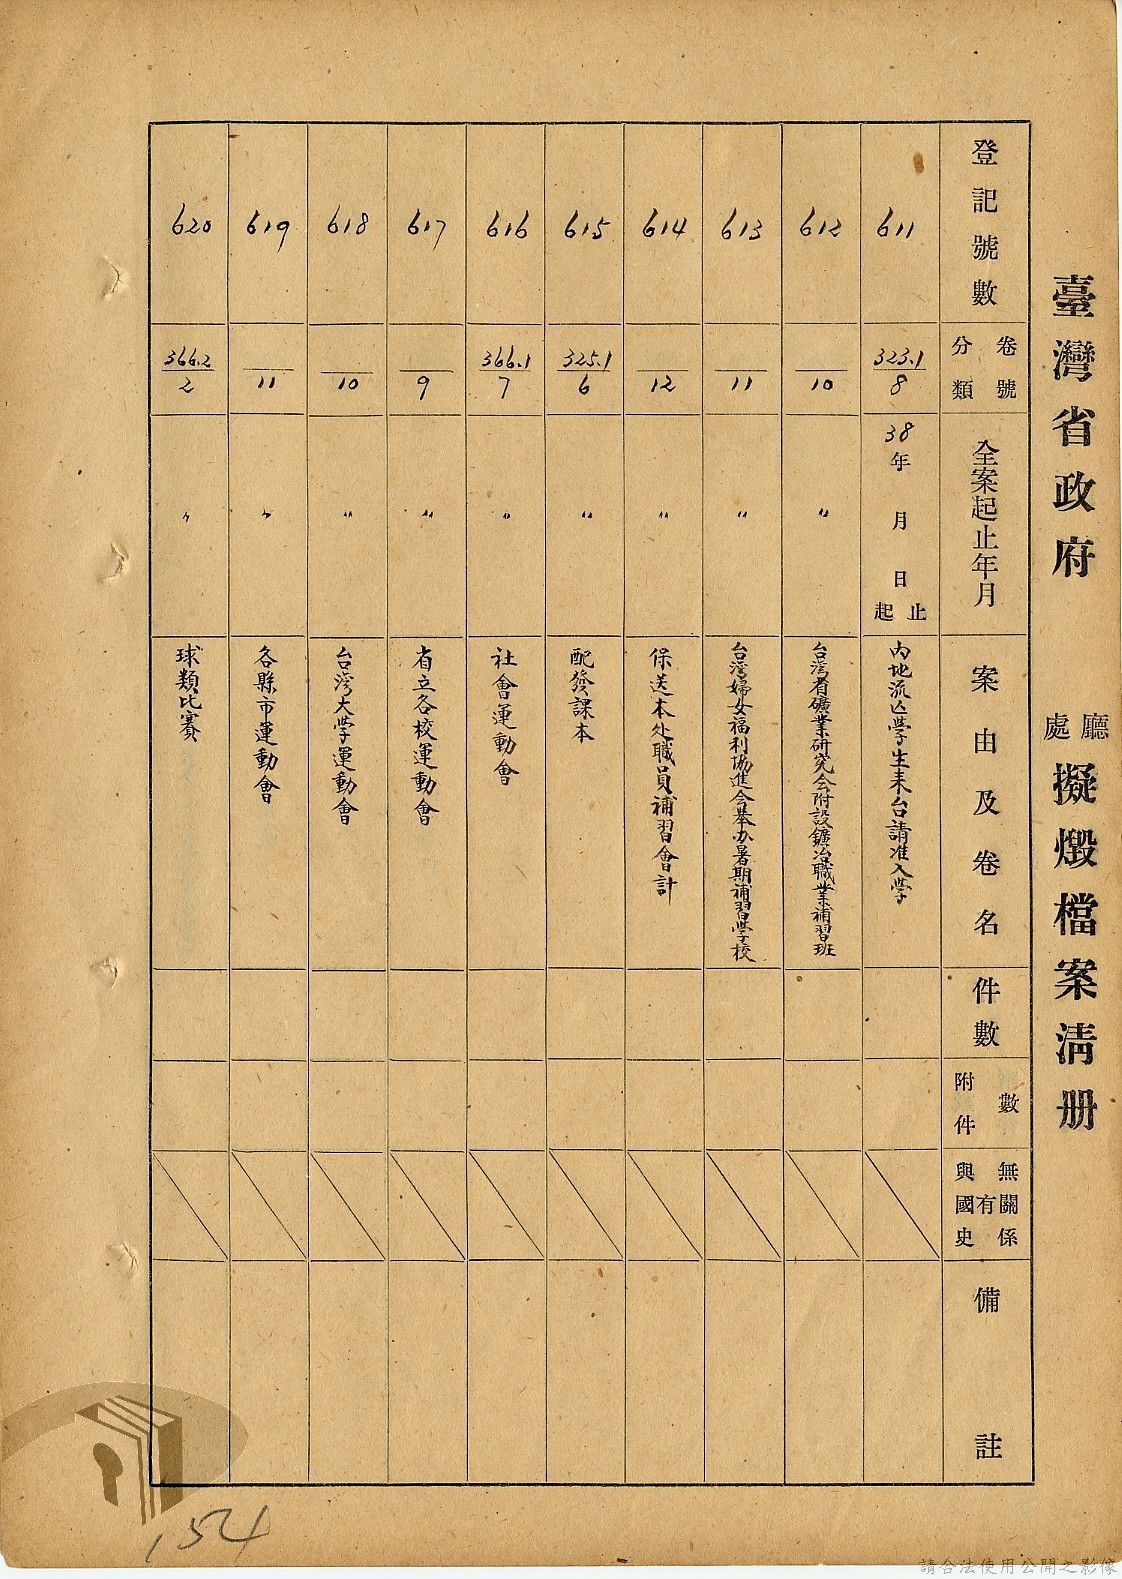 臺灣省政府 廳處 擬燬檔案清册
登記號數
卷號分類
全案起止年月
案由及卷名
件數
附件數
與國史有無關係
備註
611
323.1
8
38年 月 日起止
內地流亡學生来台請准入學
612
10
〃
台湾省礦業研究会附設鑛冶職業補習班
613
11
〃
台湾婦女福利協進会举办暑期補習學校
614
12
〃
保送本处職員補習會計
615
325.1
6
〃
配發課本
616
366.1
7
〃
社會運動會
617
9
〃
省立各校運動會
618
10
〃
台湾大學運動會
619
11
〃
各縣市運動會
620
366.2
2
〃
球類比賽
154
請合法使用公開之影像